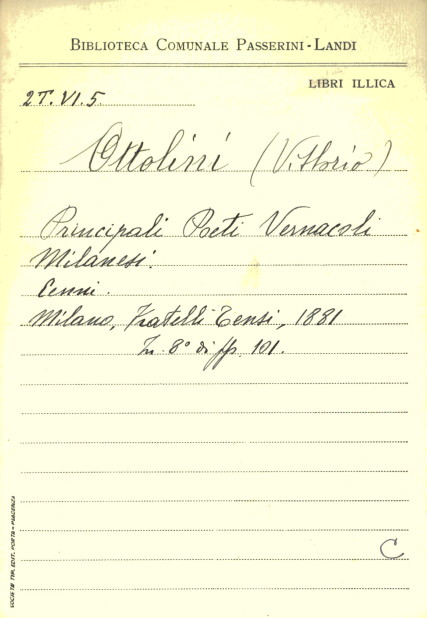 BIBLIOTECA COMUNALE PASSERINI-LANDI
LIBRI ILLICA
2T.VI.5.
Ottolini (Vittorio)
Principali Poeti Vernacoli
Milanesi.
Cenni.
Milano, Fratelli Bensi, 1881
In 8° di pp. 101.
C
SOCIETÀ TIP. EDIT. PORTA - PIACENZA